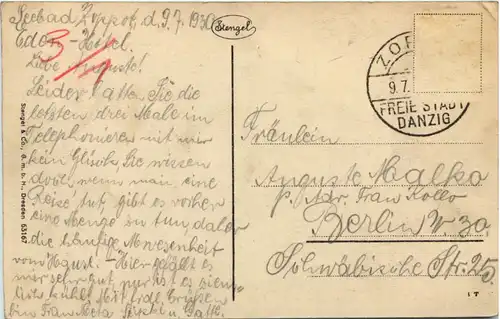 Seebad Zoppot, d. 9.7.1930
Eden-Hotel.
Liebe Auguste!
Leider hatten Sie die
letzten drei Male im
Telephonieren mit mir
kein Glück. Sie wissen
doch, wenn man eine
Reise tut, gibt es vorher
eine Menge zu tun, daher
die häufige Abwesenheit
vom Hause. - Hier gefällt es
mir sehr gut, nur ist es ziem-
lich kühl. Mit frdl. Grüßen
bin Frau Meta
3/1
Stengel
Stengel & Co., G. m. b. H., Dresden 53167
ZOP
9.7.
FREIE STADT
DANZIG
Fräulein
Auguste Malko
p. Adr. Frau Kollo
Berlin W. 30
Schwäbische Str. 25.
1 T